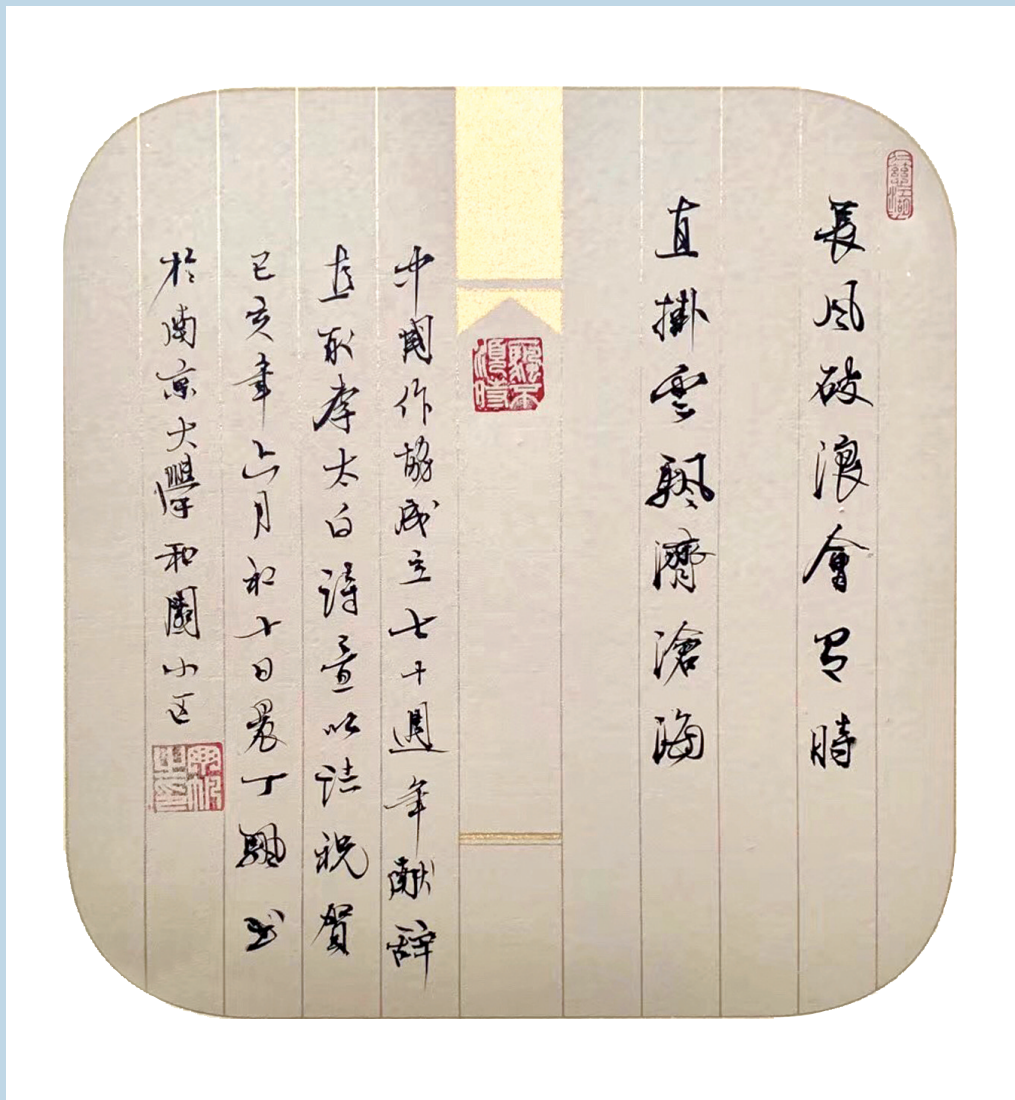 長風破浪會有時
直掛雲颿濟滄海
中國作協成立七十週年獻辞
取李太白詩意以誌祝賀
己亥年六月初十日晨丁颿书
於南京大學和園小区